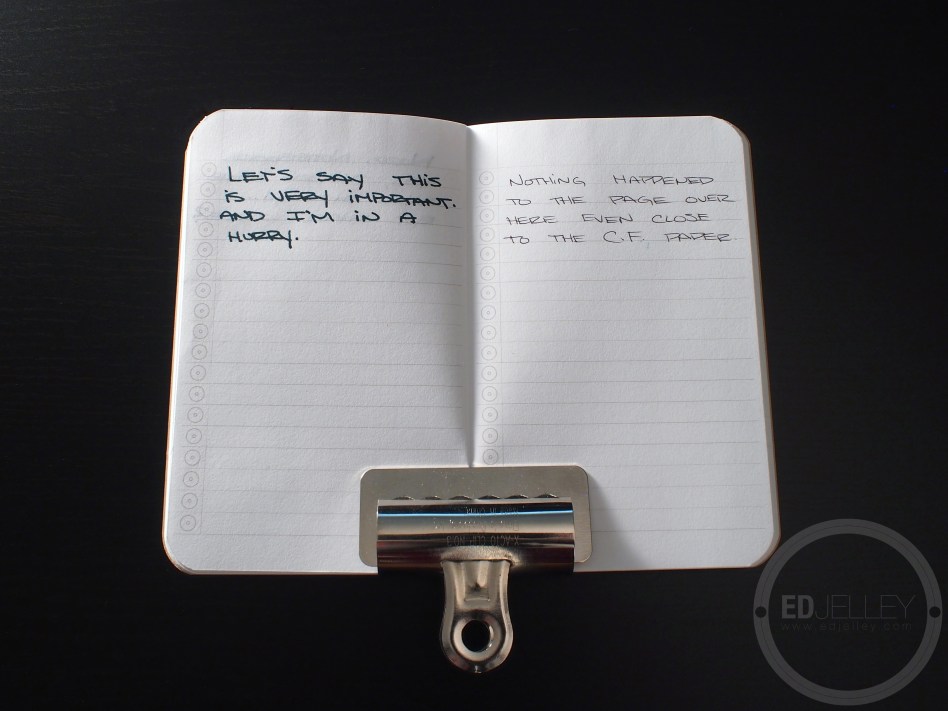 LET'S SAY THIS
IS VERY IMPORTANT.
AND I'M IN A
HURRY.
NOTHING HAPPENED
TO THE PAGE OVER
HERE EVEN CLOSE
TO THE C.F. PAPER.
X-ACTO CLIP NO.3
EDJELLEY
www.edjelley.com